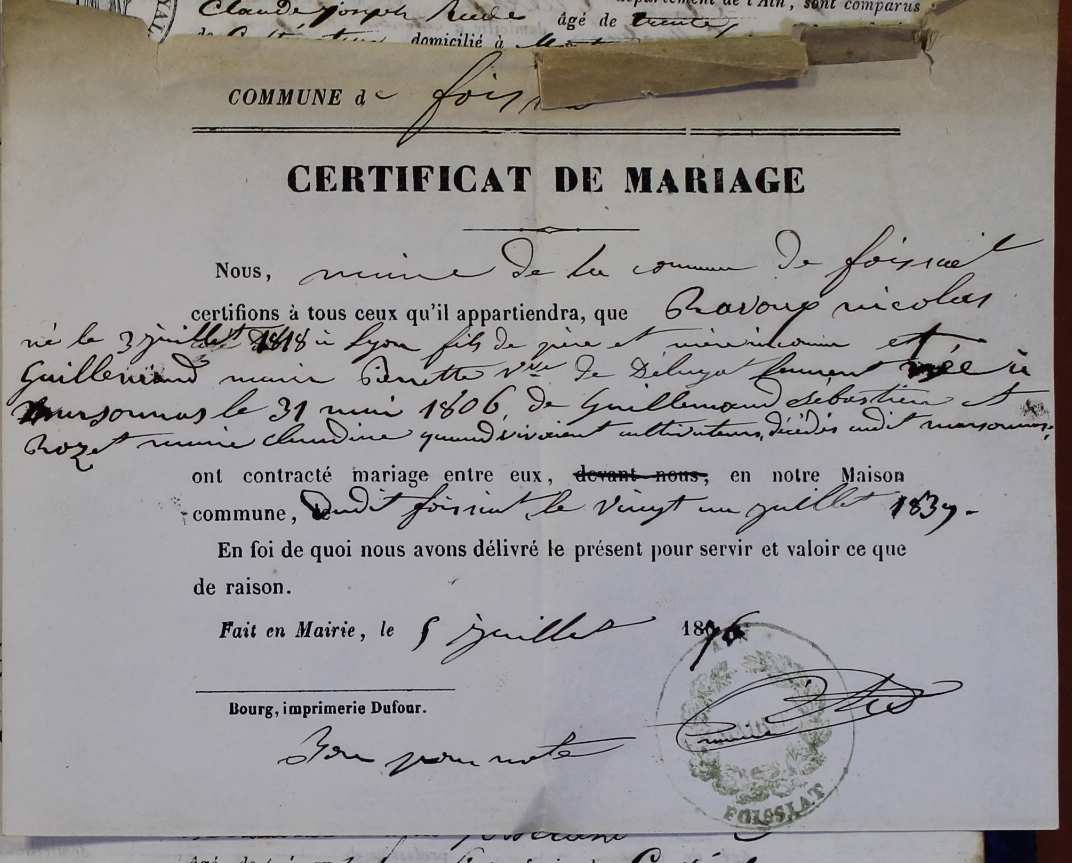 Claude joseph âgé de trente
département de l'Ain, sont comparus :
domicilié à
COMMUNE de foissiat
CERTIFICAT DE MARIAGE
Nous, maire de la commune de foissiat
certifions à tous ceux qu'il appartiendra, que Ravoux nicolas
né le 3 juillet 1818 à Lyon fils de père et mère inconnu et
Guillemaud marie Pierrette vve de Laurent née à
marsonnas le 31 mai 1806, de Guillemaud Sébastien et
Rozet marie claudine quand vivaient cultivateurs, décédés audit marsonnas,
ont contracté mariage entre eux, devant nous, en notre Maison
commune, dudit foissiat le vingt un juillet 1837.
En foi de quoi nous avons délivré le présent pour servir et valoir ce que
de raison.
Fait en Mairie, le 5 juillet 1876
Bourg, imprimerie Dufour.
Bon pour note
FOISSIAT
âgé de